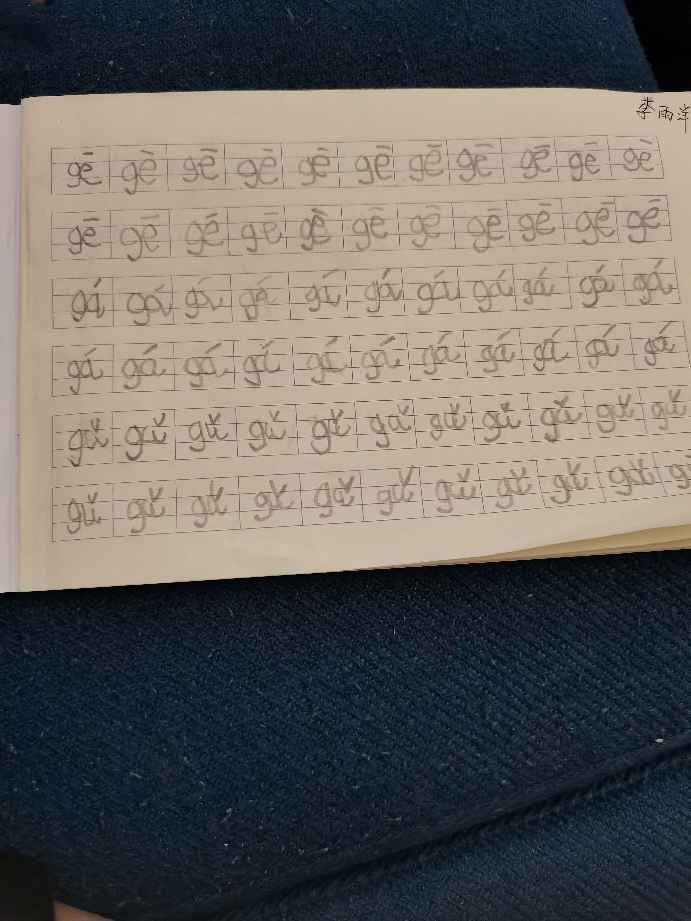 李雨洋
gē gē gē gē gē gē gē gē gē gē gē
gē gē gē gē gē gē gē gē gē gē gē
gá gá gá gá gá gá gá gá gá gá gá
gá gá gá gá gá gá gá gá gá gá gá
gǔ gǔ gǔ gǔ gǔ gǔ gǔ gǔ gǔ gǔ gǔ
gǔ gǔ gǔ gǔ gǔ gǔ gǔ gǔ gǔ gǔ